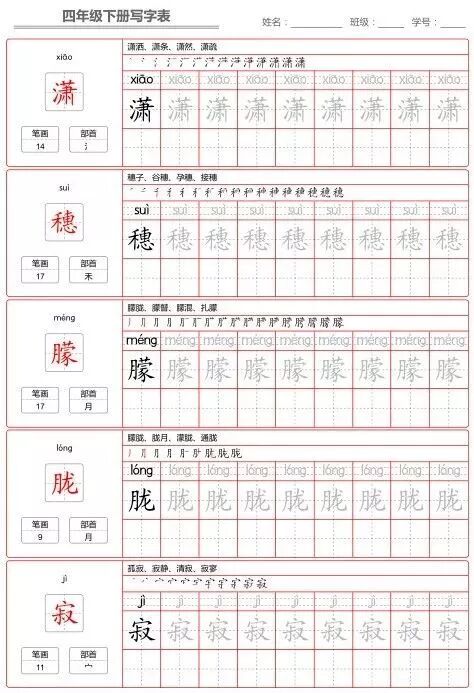 四年级下册写字表 姓名： 班级： 学号：
xiāo
潇
笔画 部首
14 氵
潇洒、潇条、潇然、潇疏
xiāo xiāo xiāo xiāo xiāo xiāo xiāo xiāo xiāo
潇 潇 潇 潇 潇 潇 潇 潇 潇
suì
穗
笔画 部首
17 禾
穗子、谷穗、孕穗、接穗
suì suì suì suì suì suì suì suì suì
穗 穗 穗 穗 穗 穗 穗 穗 穗
méng
朦
笔画 部首
17 月
朦胧、朦瞽、朦混、扎朦
méng méng méng méng méng méng méng méng méng
朦 朦 朦 朦 朦 朦 朦 朦 朦
lóng
胧
笔画 部首
9 月
朦胧、胧月、濛胧、通胧
lóng lóng lóng lóng lóng lóng lóng lóng lóng
胧 胧 胧 胧 胧 胧 胧 胧 胧
jì
寂
笔画 部首
11 宀
孤寂、寂静、清寂、寂寥
jì jì jì jì jì jì jì jì jì
寂 寂 寂 寂 寂 寂 寂 寂 寂